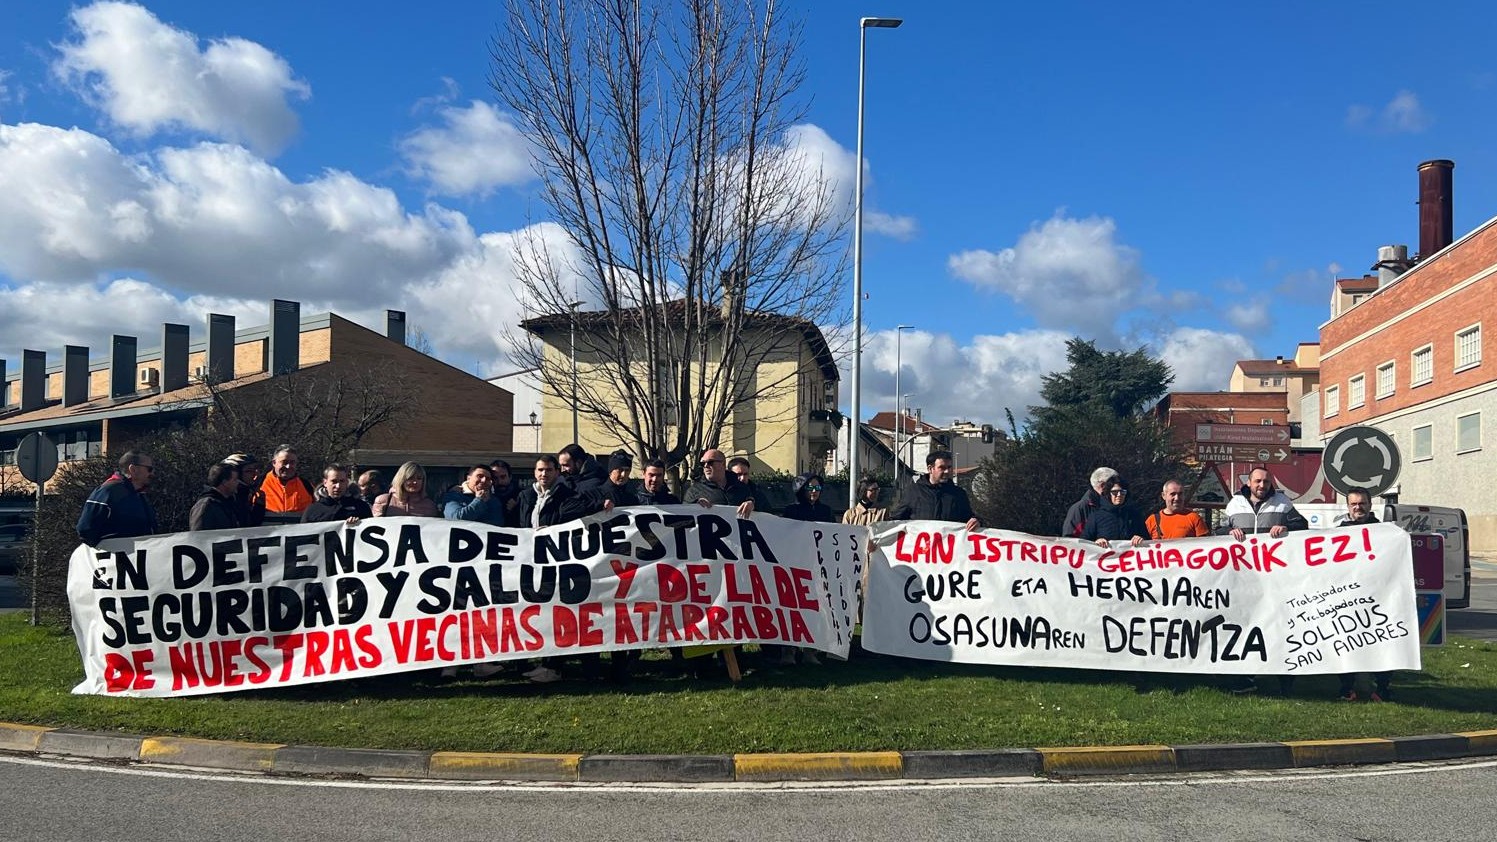 EN DEFENSA DE NUESTRA
SEGURIDAD Y SALUD Y DE LA DE
DE NUESTRAS VECINAS DE ATARRABIA
PLANTILLA
SOLIDUS
SAN
LAN ISTRIPU GEHIAGORIK EZ!
GURE ETA HERRIAREN
OSASUNAREN DEFENTZA
Trabajadores
y Trabajadoras
SOLIDUS
SAN ANDRES
BATÁN
PILATEGIA